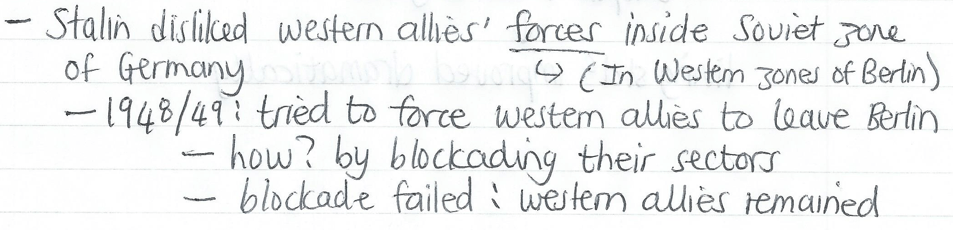 – Stalin disliked western allies' forces inside Soviet zone
of Germany ↳ (In Western zones of Berlin)
– 1948/49: tried to force western allies to leave Berlin
– how? by blockading their sectors
– blockade failed : western allies remained